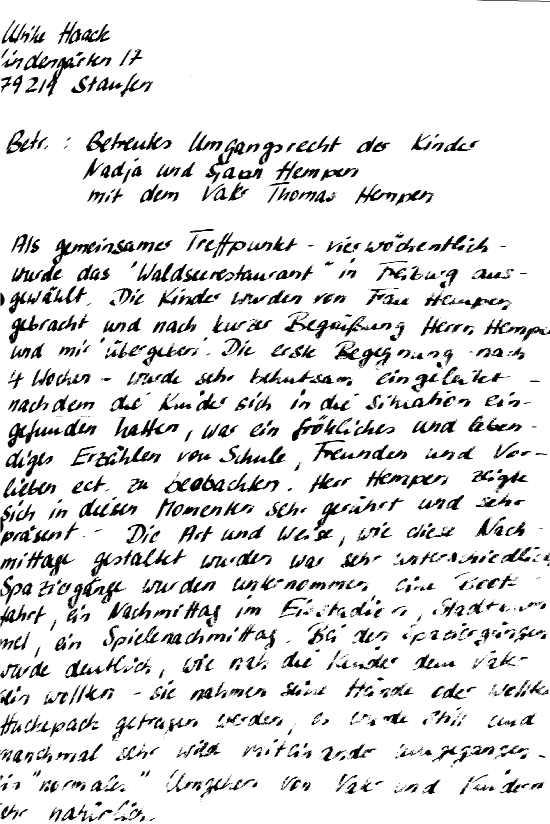 Ulrike Haack
indengärten 17
79219 Staufen
Betr.: Betreutes Umgangsrecht der Kinder
Nadja und Hempen
mit dem Vater Thomas Hempen
Als gemeinsamer Treffpunkt - vierwöchentlich -
wurde das "Waldseerestaurant" in Freiburg aus-
gewählt. Die Kinder wurden von Frau Hempen
gebracht und nach kurzer Begrüßung Herrn Hempe
und mir 'übergeben'. Die erste Begegnung - nach
4 Wochen - wurde sehr behutsam eingeleitet -
nachdem die Kinder sich in die Situation ein-
gefunden hatten, war ein fröhliches und leben-
diges Erzählen von Schule, Freunden und Vor-
lieben ect. zu beobachten. Herr Hempen zeigte
sich in diesen Momenten sehr gerührt und sehr
präsent. - Die Art und Weise, wie diese Nach-
mittage gestaltet wurden war sehr unterschiedlich
Spaziergänge wurden unternommen, eine Boots
fahrt, ein Nachmittag im Eisstadion, Stadtbum
mel, ein Spielenachmittag. Bei den Spaziergängen
wurde deutlich, wie nah die Kinder dem Vater
sein wollten - sie nahmen seine Hände oder wollten
Huckepack getragen werden, es wurde still und
manchmal sehr wild miteinander umgegangen -
ein "normales" Umgehen von Vater und Kindern
sehr natürlich.